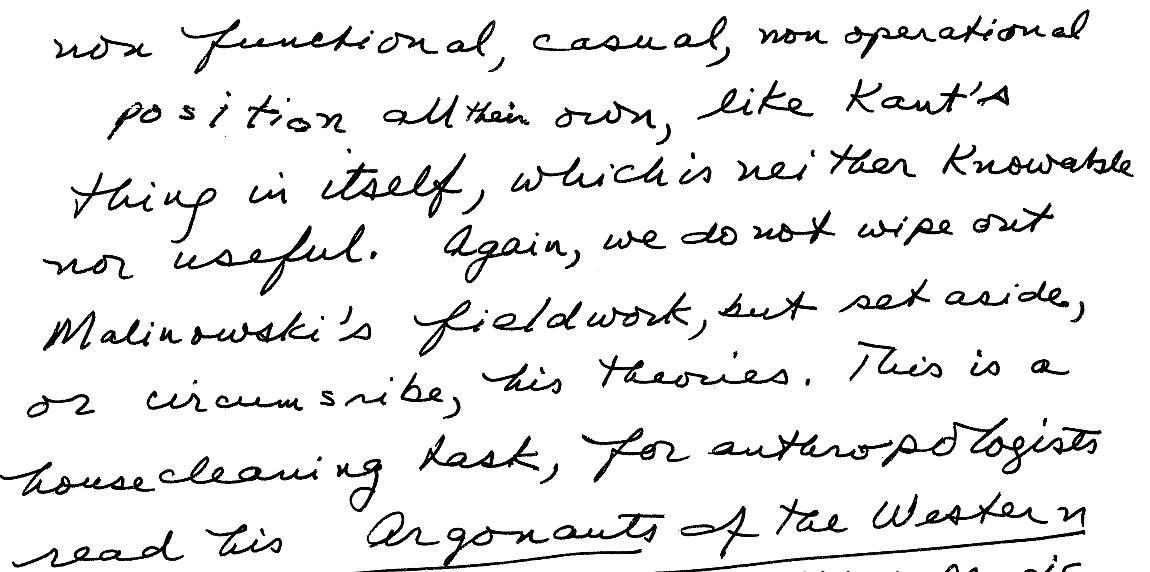 non functional, casual, non operational
position all their own, like Kant's
thing in itself, which is neither Knowable
nor useful. Again, we do not wipe out
Malinowski's fieldwork, but set aside,
or circumsribe, his theories. This is a
housecleaning task, for anthropologists
read his Argonauts of the Western